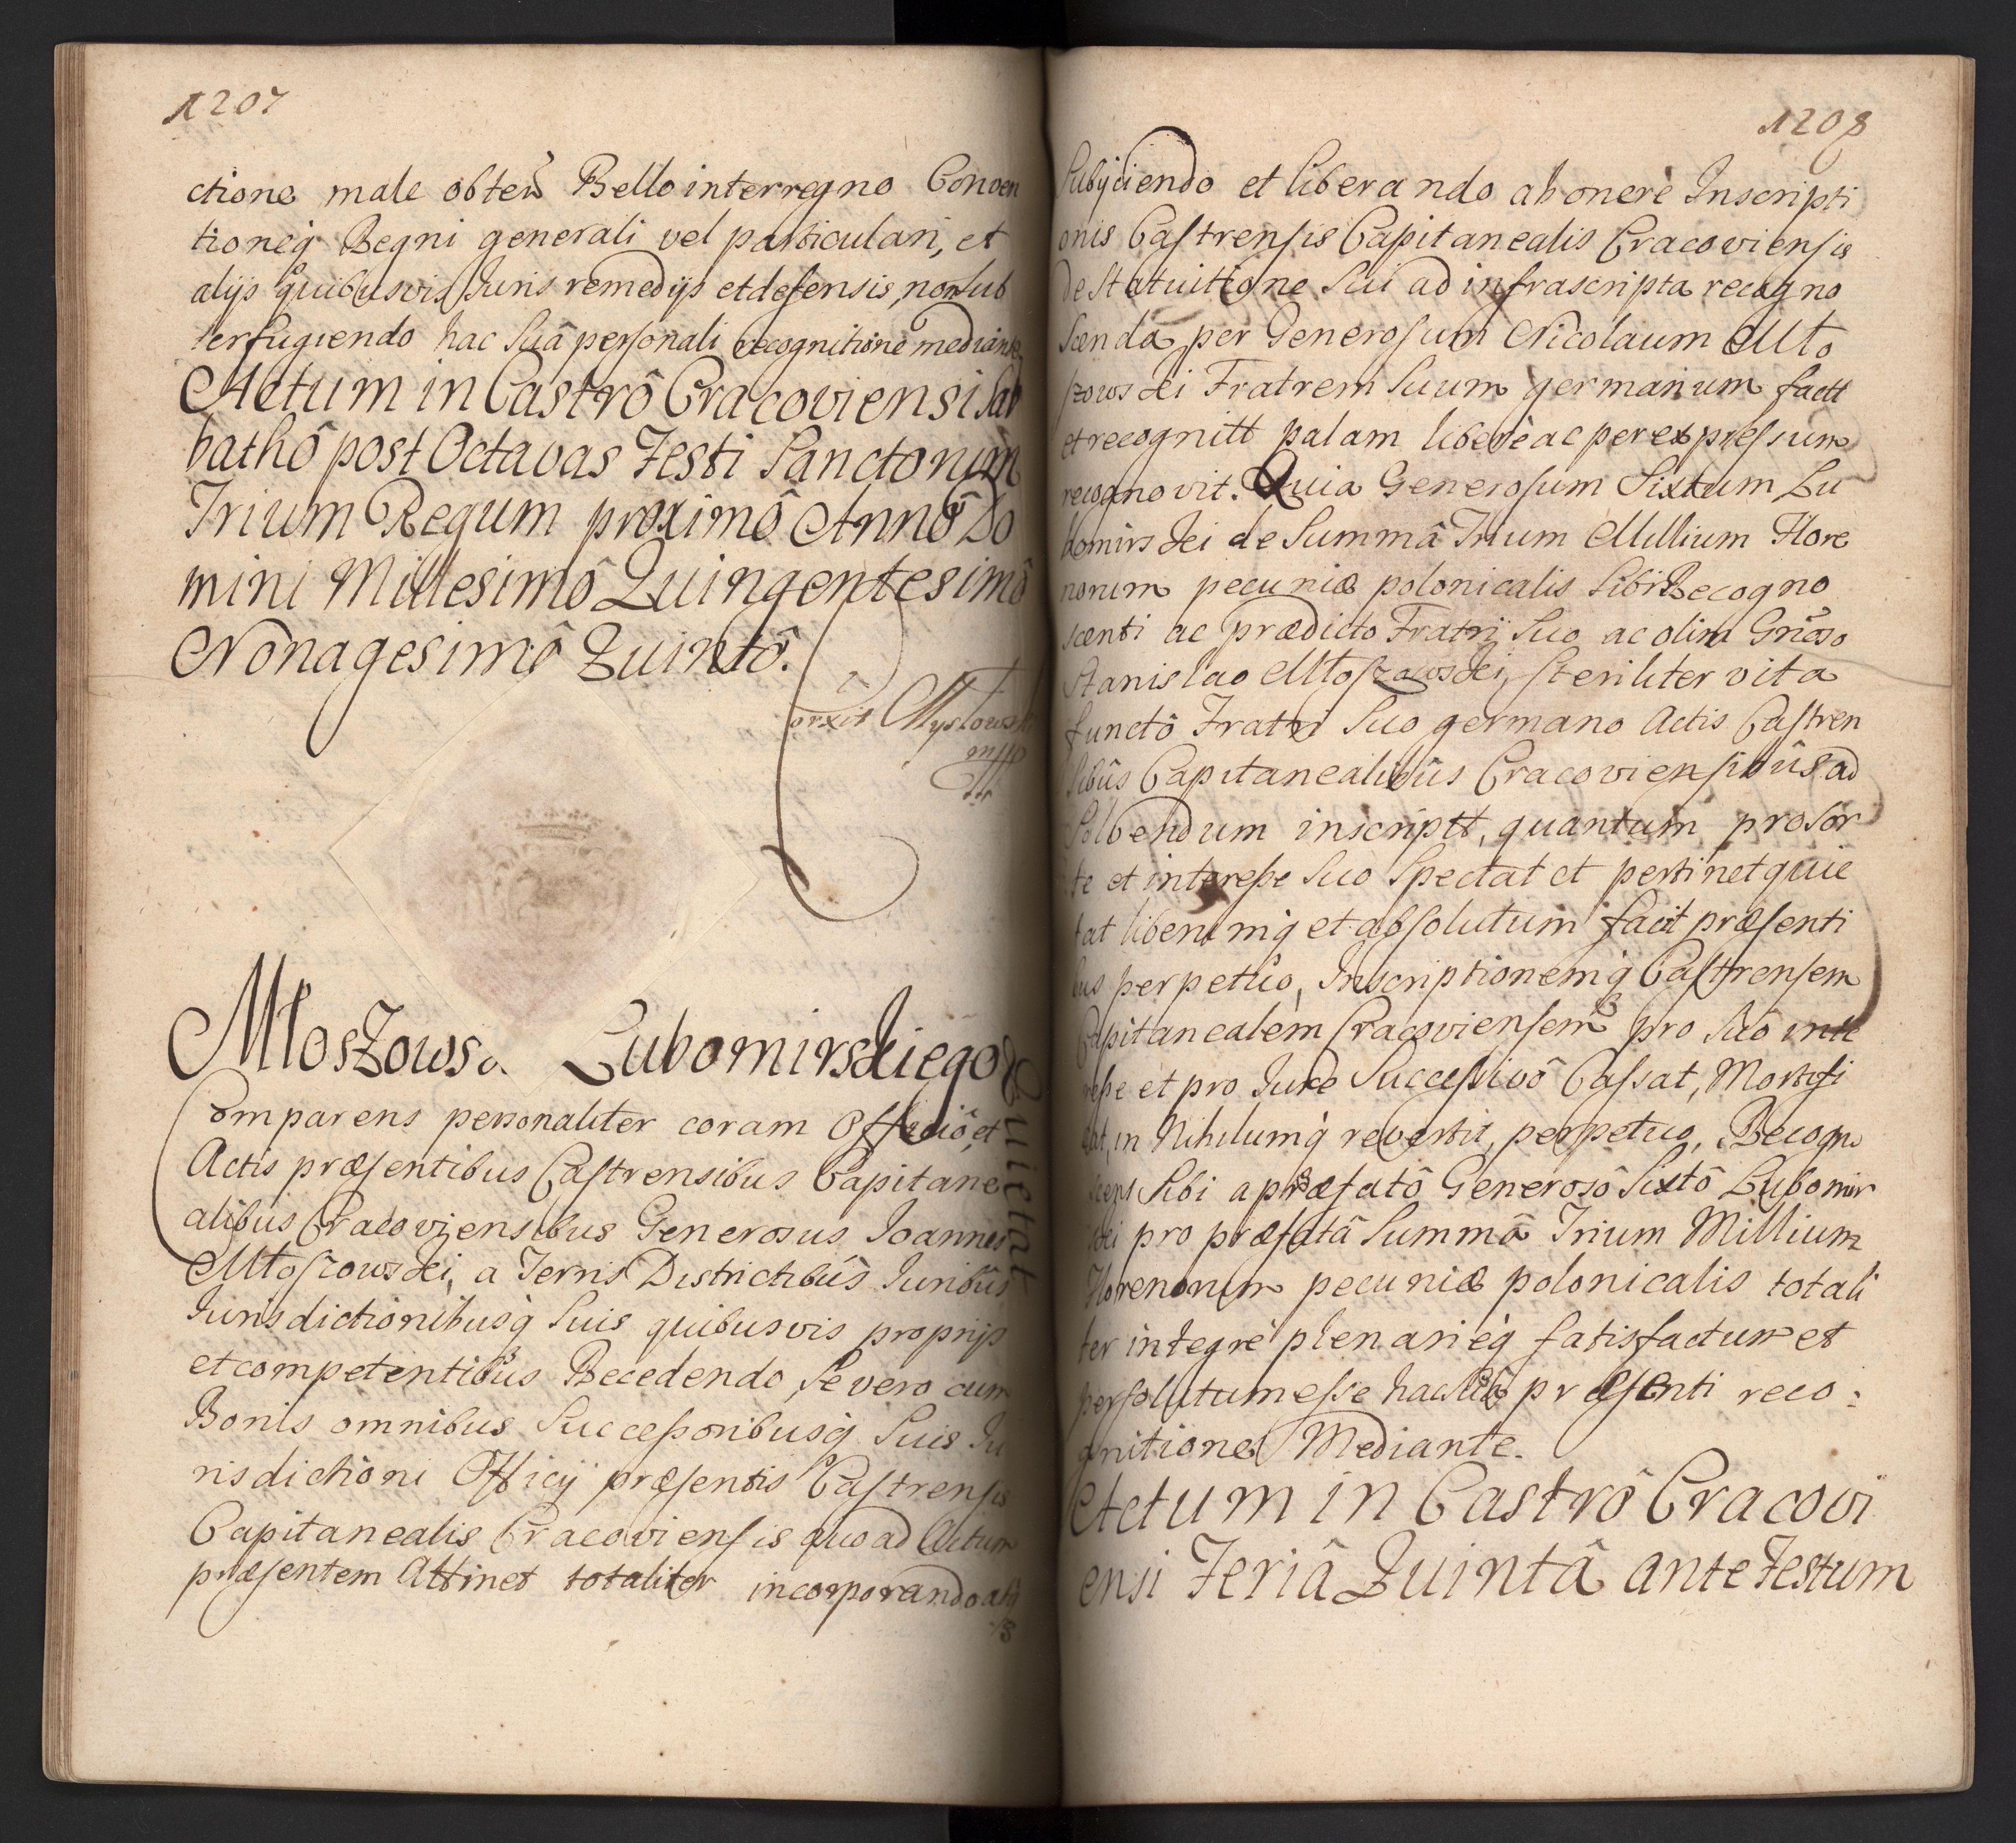 1207
ctione male obten Bello interregno Conven
tioneq Regni generali vel particulari, et
alijs quibusvis Juris remedijs et defensis, non sub
terfugiendo hac Suâ personali recognitione mediante
Actum in Castrô Cracoviensi Sab
bathô post Octavas Festi Sanctorum
Trium Regum proximô Annô Do
mini Millesimô Quingentesimô
Nonagesimô Quintô.
Młoszows Lubomirskiego
Quietat
Comparens personaliter coram Officiô, et
Actis præsentibus Castrensibus Capitane
alibus Cracoviensibus Generosus Joannes
Młoszowski, a Terris Districtibûs Juribûs
Jurisdictionibusq Suis quibusvis proprijs
et competentibûs Recedendo, Se vero cum
Bonis omnibus Successoribusq Suis Ju
risdictioni Officij præsentis Castrensis
Capitanealis Cracoviensis quo ad Actum
præsentem Attinet totaliter incorporando atq
1208
Subijciendo et liberando ab onerè Inscripti
onis Castrensis Capitanealis Cracoviensis
de Statuitione Sui ad infrascripta recogno
scenda per Generosum Nicolaum Mło
szowski Fratrem Suum germanum factt
et recognitt palam liberè ac per expressum
recognovit. Quia Generosum Sixtum Lu
bomirski de Summâ Trium Millium Flore
norum pecuniæ polonicalis Sibi Recogno
scenti ac prædicto Fratri Suo ac olim Gnoso
Stanislao Młoszowski, steriliter vita
functô Fratri Suo germano Actis Castren
sibûs Capitanealibûs Cracoviensibûs ad
Solvendum inscriptt, quantum pro Sor
te et interesse Suo Spectat et pertinet quie
tat liberumq et absolutum facit præsenti
bus perpetuo, Inscriptionemq Castrensem
Capitanealem Cracoviensem pro Suo inte
resse et pro Jure Successivô Cassat, Mortifi
cat, in Nihilumq revertit, perpetuo, Recogno
scens Sibi a præfatô Generosô Sixtô Lubomir
ski pro præfatâ Summâ Trium Millium
Florenorum pecuniæ polonicalis totali
ter integrè plenarièq satisfactum et
persolutum esse hac Suâ præsenti reco:
gnitione Mediante.
Actum in Castrô Cracovi
ensi Feriâ Quintâ ante Festum